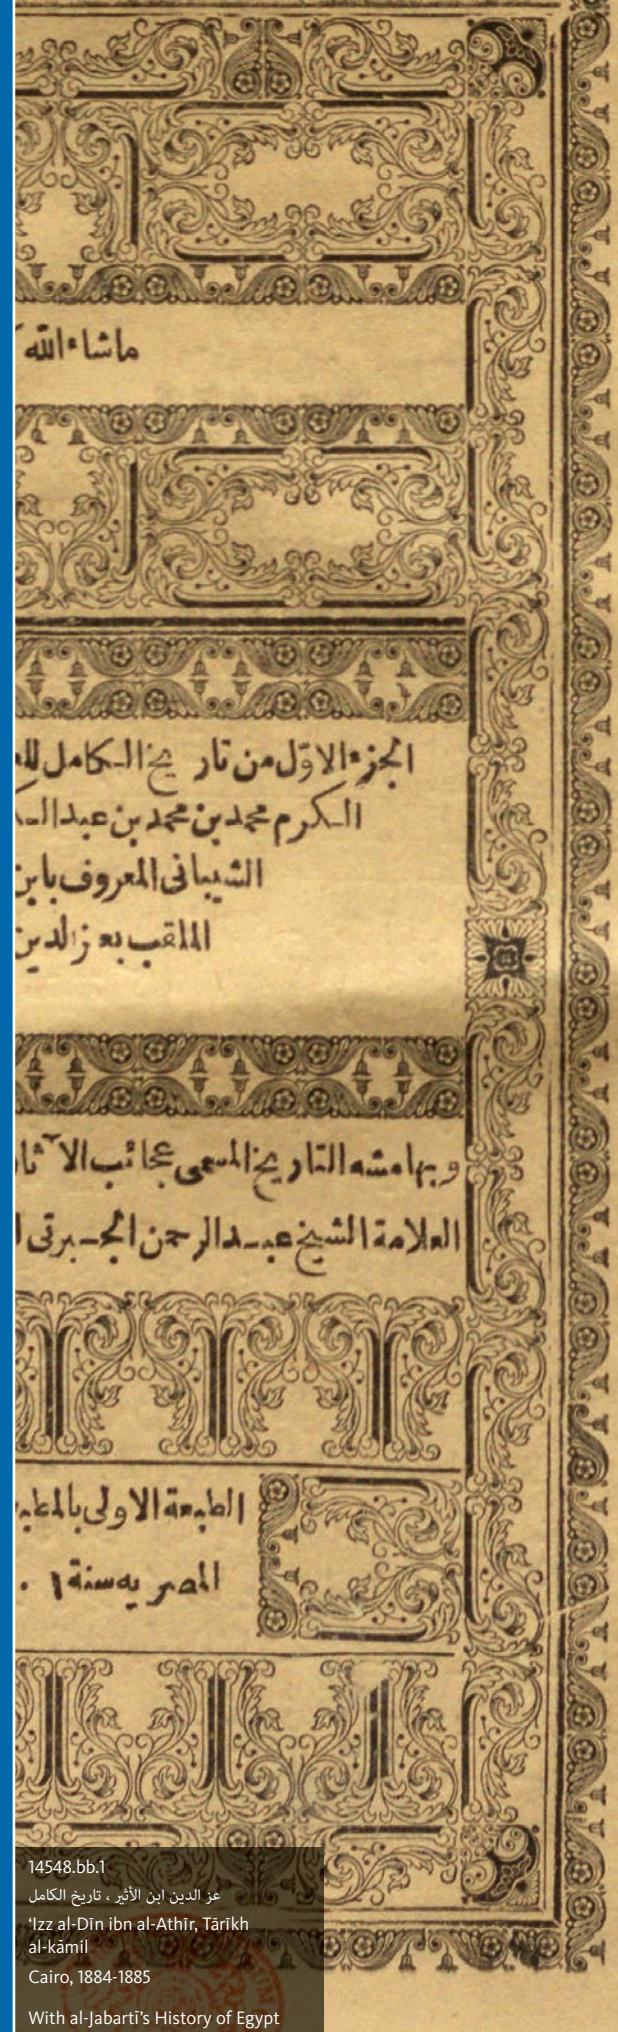 ماشاءالله
الجزء الاوّل من تاريخ الكامل
الكرم محمد بن محمد بن عبد
الشيبانى المعروف بابن
الملقب بعز الدين
وبهامشه التاريخ المسمى عجائب الآثار
العلامة الشيخ عبدالرحمن الجبرتى
الطبعة الاولى
المصريه سنة
14548.bb.1
عز الدين ابن الأثير ، تاريخ الكامل
‘Izz al-Dīn ibn al-Athīr, Tārīkh
al-kāmil
Cairo, 1884-1885
With al-Jabartī’s History of Egypt